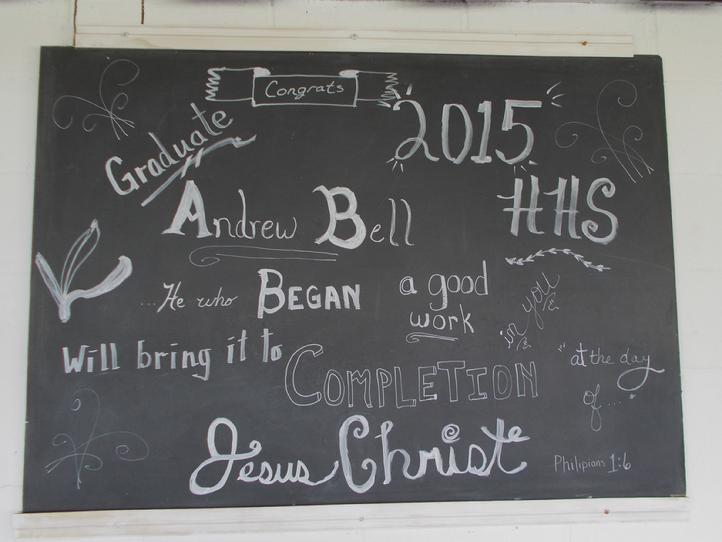 Congrats
Graduate
2015
Andrew Bell
HHS
...He who BEGAN a good work in you
Will bring it to COMPLETION "at the day of...."
Jesus Christ
Philipians 1:6